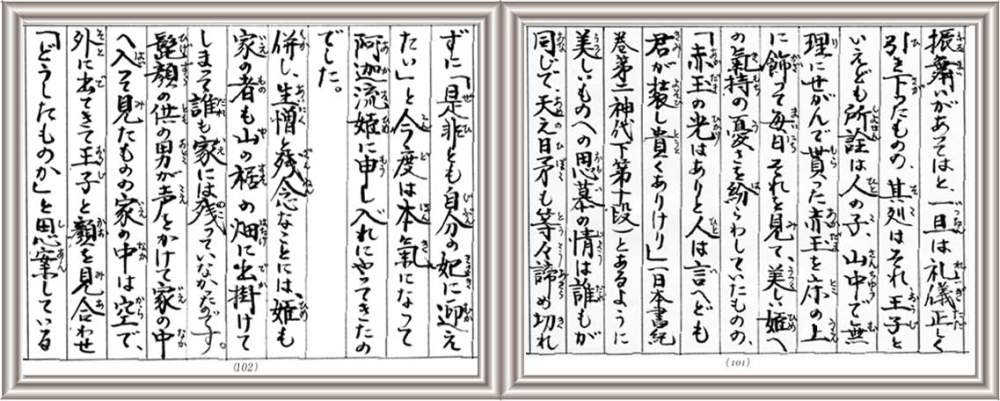 振舞いがあってはと、一旦は礼儀正しく
引き下ったものの、其処はそれ、王子と
いえども所詮は人の子、山中で無
理にせがんで貰った赤玉を床の上
に飾って毎日それを見て、美しい姫へ
の氣持の憂さを紛らわしていたものの、
「赤玉の光はありと人は言へども
君が装し貴くありけり」(日本書紀
巻第二神代下第十段)とあるように
美しいものへの思慕の情は誰もが
同じで、天之日矛も等々諦め切れ
(101)
ずに「是非とも自分の妃に迎え
たい」と今度は本氣になって
阿迦流姫に申し入れにやってきたの
でした。
併し、生憎と残念なことには、姫も
家の者も山の裾の畑に出掛けて
しまって誰も家には残っていなかったのです。
髭顔の供の男が声をかけて家の中
へ入って見たものの家の中は空で、
外に出てきて王子と顔を見合わせ
「どうしたものか」と思案している
(102)